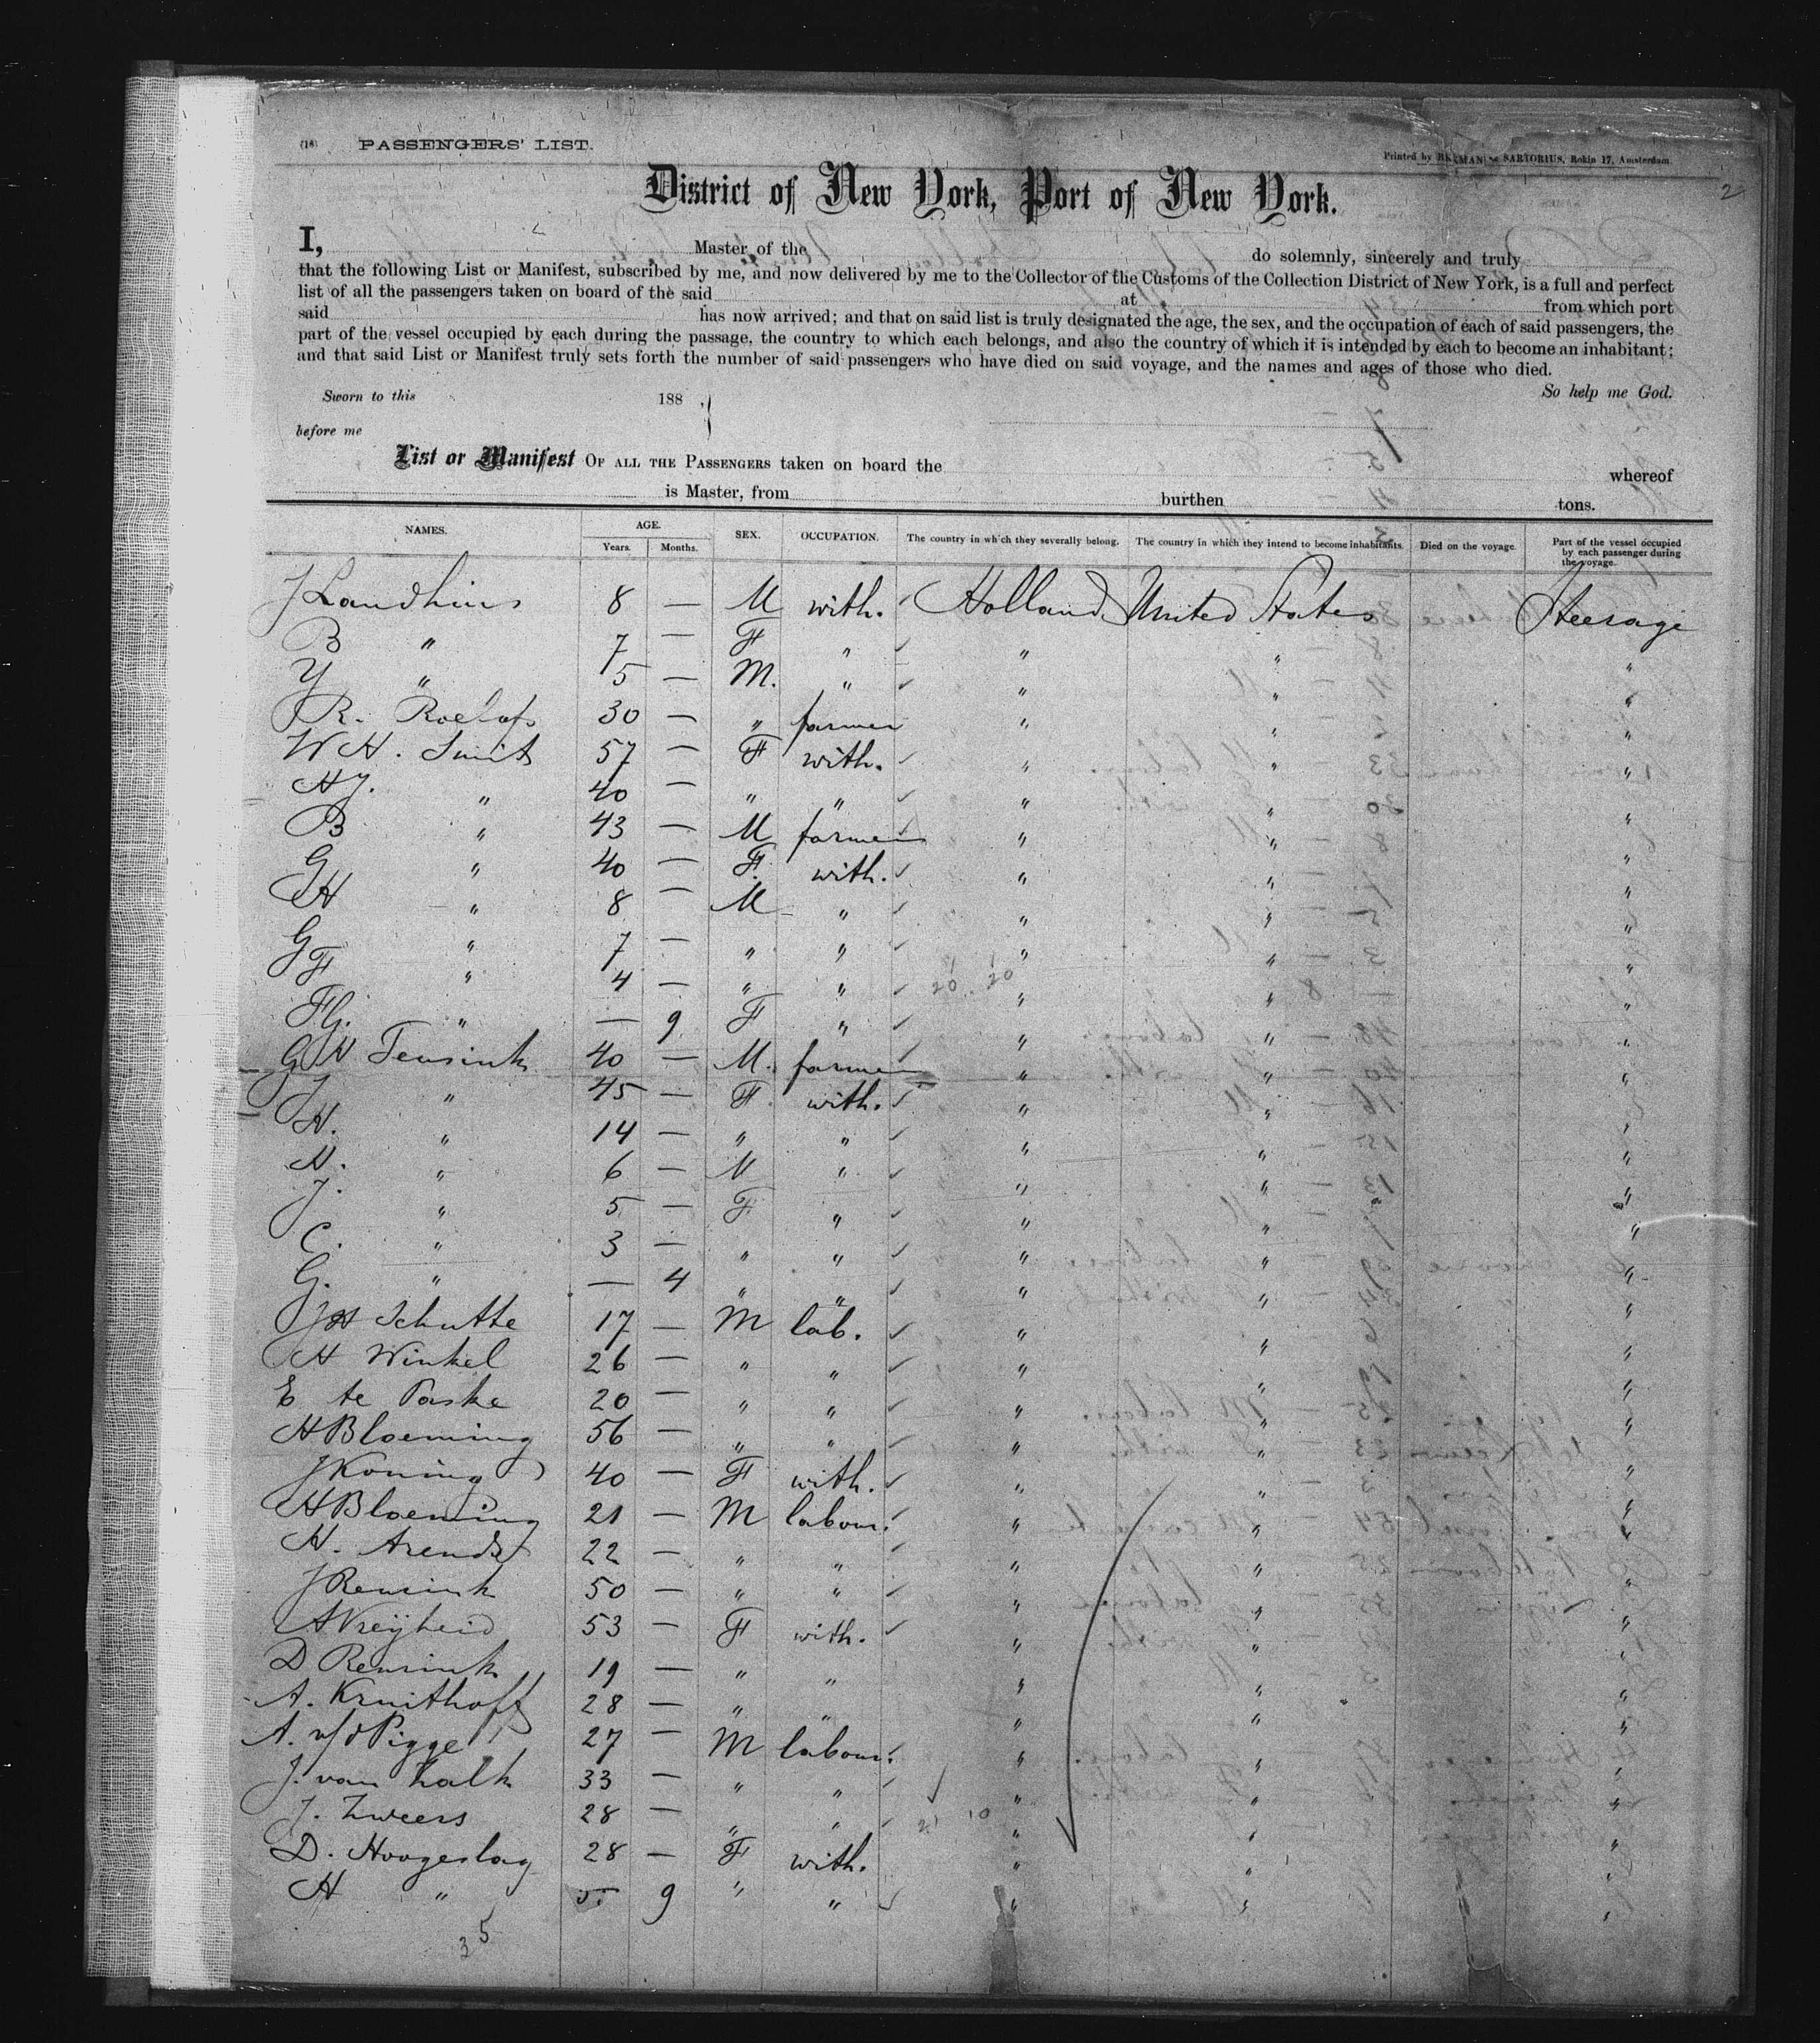 (18) PASSENGERS' LIST.
Printed by & SARTORIUS, Rokin 17, Amsterdam.
2
District of New York, Port of New York.
I, Master of the do solemnly, sincerely and truly
that the following List or Manifest, subscribed by me, and now delivered by me to the Collector of the Customs of the Collection District of New York, is a full and perfect
list of all the passengers taken on board of the said at from which port
said has now arrived; and that on said list is truly designated the age, the sex, and the occupation of each of said passengers, the
part of the vessel occupied by each during the passage, the country to which each belongs, and also the country of which it is intended by each to become an inhabitant;
and that said List or Manifest truly sets forth the number of said passengers who have died on said voyage, and the names and ages of those who died.
Sworn to this 188 , So help me God.
before me
List or Manifest OF ALL THE PASSENGERS taken on board the whereof
is Master, from burthen tons.
NAMES. AGE. SEX. OCCUPATION. The country in which they severally belong. The country in which they intend to become inhabitants. Died on the voyage. Part of the vessel occupied by each passenger during the voyage.
Years. Months.
J Landhuis 8 — M with. Holland United States Steerage
B " 7 — F " " " "
Y " 5 — M. " " " "
R. Roelofs 30 — " farmer " " "
W H. Smit 57 — F with. " " "
H J. " 40 — " " " " "
B " 43 — M farmer " " "
G " 40 — F. with. " " "
G H " 8 — M " " " "
G " 7 — " " " " "
F " 4 — " " 20 . 20 " " "
" — 9 F " " " "
G W Tensink 40 — M. farmer " " "
J " 45 — F with. " " "
H. " 14 — " " " " "
N. " 6 — M " " " "
J. " 5 — F " " " "
C. " 3 — " " " " "
G. " — 4 " " " " "
J H Schutte 17 — M lab. " " "
H Winkel 26 — " " " " "
E te Paske 20 — " " " " "
H Bloeming 56 — " " " " "
J Koning 40 — F with. " " "
H Bloeming 21 — M labour. " " "
H. Arends 22 — " " " " "
J Rensink 50 — " " " " "
A Vreijheid 53 — F with. " " "
D Rensink 19 — " " " " "
A. Kruithoff 28 — " " " " "
A. v/d Pigge 27 — M labour. " " "
J. van Kalk 33 — " " " " "
J. Zweers 28 — " " " " "
D. Hoogeslag 28 — F with. " " "
H " 9 " " " " "
35